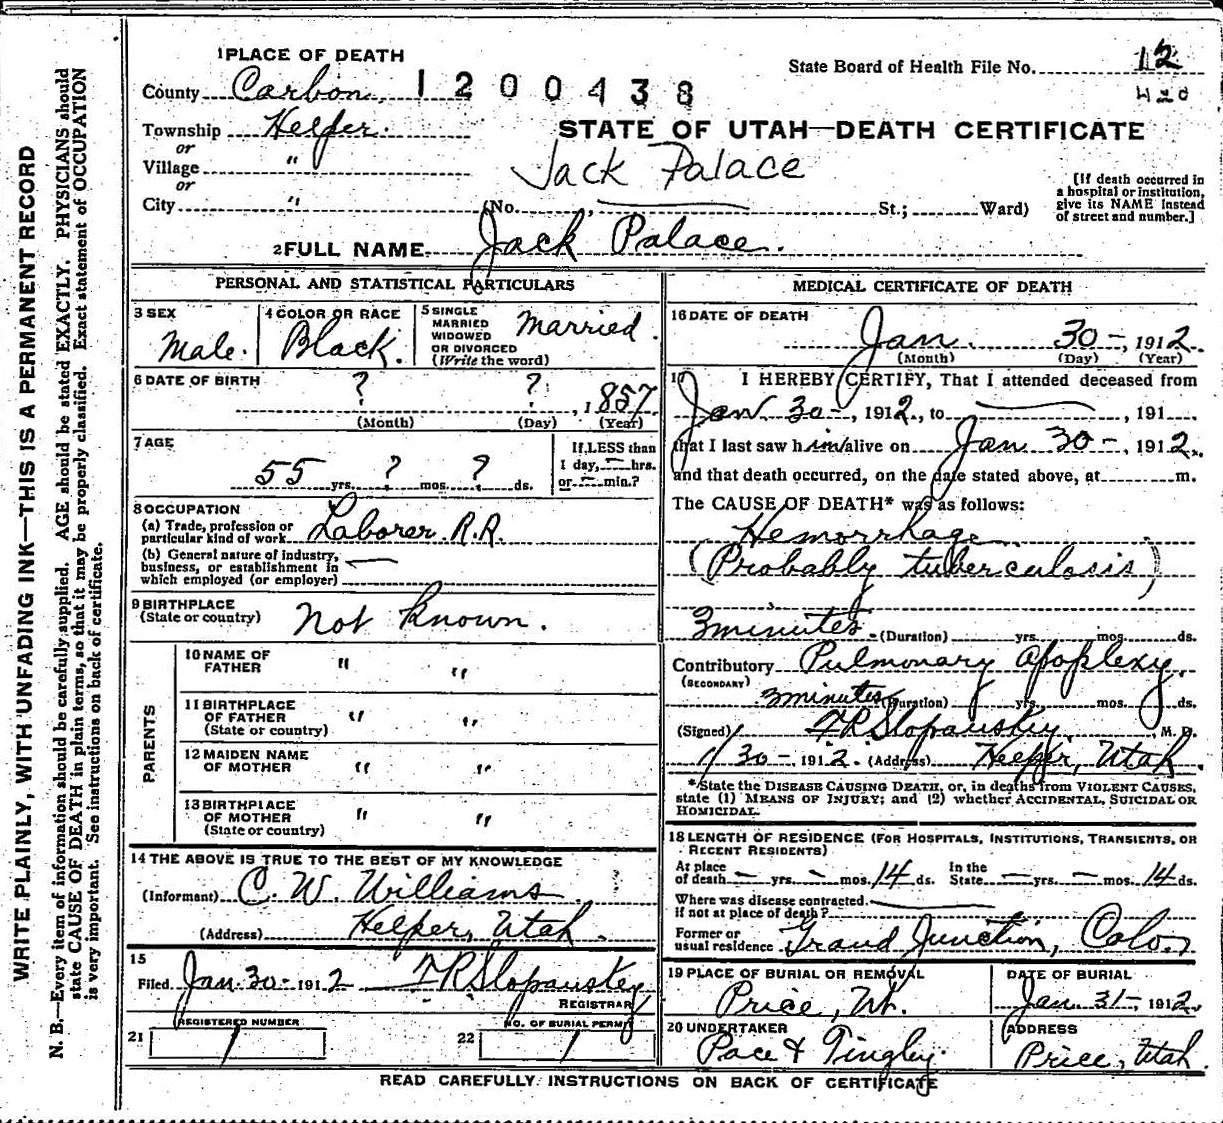 1 PLACE OF DEATH
State Board of Health File No. 12
County Carbon. 1200438
420
Township Helper.
STATE OF UTAH—DEATH CERTIFICATE
or
Village "
Jack Palace
or
City " (No. , St.; Ward)
[If death occurred in
a hospital or institution,
give its NAME instead
of street and number.]
2 FULL NAME Jack Palace.
PERSONAL AND STATISTICAL PARTICULARS
3 SEX
Male.
4 COLOR OR RACE
Black.
5 SINGLE
MARRIED
WIDOWED
OR DIVORCED
(Write the word)
Married.
6 DATE OF BIRTH
? ? , 1857
(Month) (Day) (Year)
7 AGE
55 yrs. ? mos. ? ds.
If LESS than
1 day, — hrs.
or — min.?
8 OCCUPATION
(a) Trade, profession or
particular kind of work Laborer R.R.
(b) General nature of industry,
business, or establishment in
which employed (or employer)
9 BIRTHPLACE
(State or country) Not known.
PARENTS
10 NAME OF
FATHER " "
11 BIRTHPLACE
OF FATHER
(State or country) " "
12 MAIDEN NAME
OF MOTHER " "
13 BIRTHPLACE
OF MOTHER
(State or country) " "
14 THE ABOVE IS TRUE TO THE BEST OF MY KNOWLEDGE
(Informant) C. W. Williams
(Address) Helper, Utah.
15
Filed Jan. 30 - 1912
REGISTRAR
21 REGISTERED NUMBER
1
22 NO. OF BURIAL PERMIT
1
MEDICAL CERTIFICATE OF DEATH
16 DATE OF DEATH
Jan. 30 - , 1912.
(Month) (Day) (Year)
17 I HEREBY CERTIFY, That I attended deceased from
Jan 30 - , 1912, to — , 191
that I last saw him alive on Jan 30 - , 1912.
and that death occurred, on the date stated above, at m.
The CAUSE OF DEATH* was as follows:
Hemorrhage
(Probably tuberculosis)
3 minutes - (Duration) yrs. mos. ds.
Contributory Pulmonary apoplexy.
(SECONDARY)
3 minutes (Duration) yrs. mos. ds.
(Signed) , M. D.
1/30 - , 1912. (Address) Helper, Utah.
*State the DISEASE CAUSING DEATH, or, in deaths from VIOLENT CAUSES,
state (1) MEANS OF INJURY; and (2) whether ACCIDENTAL, SUICIDAL OR
HOMICIDAL.
18 LENGTH OF RESIDENCE (FOR HOSPITALS, INSTITUTIONS, TRANSIENTS, OR
RECENT RESIDENTS)
At place
of death — yrs. — mos. 14 ds.
In the
State — yrs. — mos. 14 ds.
Where was disease contracted.
if not at place of death?
Former or
usual residence Grand Junction, Colo.
19 PLACE OF BURIAL OR REMOVAL
Price, Ut.
DATE OF BURIAL
Jan. 31 - 1912.
20 UNDERTAKER
Pace & Tingley.
ADDRESS
Price, Utah
READ CAREFULLY INSTRUCTIONS ON BACK OF CERTIFICATE
WRITE PLAINLY, WITH UNFADING INK—THIS IS A PERMANENT RECORD
N. B.—Every item of information should be carefully supplied. AGE should be stated EXACTLY. PHYSICIANS should
state CAUSE OF DEATH in plain terms, so that it may be properly classified. Exact statement of OCCUPATION
is very important. See instructions on back of certificate.